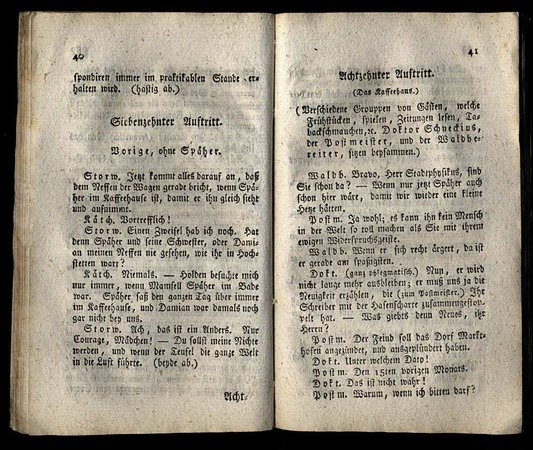 40
spondiren immer im praktikablen Stande er-
halten wird. (hastig ab.)
Siebenzehnter Auftritt.
Vorige, ohne Späher.
Storw. Jetzt kommt alles darauf an, daß
dem Neffen der Wagen gerade bricht, wenn Spä-
her im Kaffeehause ist, damit er ihn gleich sieht
und aufnimmt.
Käth. Vortrefflich!
Storw. Einen Zweifel hab ich noch. Hat
denn Späher und seine Schwester, oder Dami-
an meinen Neffen nie gesehen, wie ihr in Hoch-
stetten wart?
Käth. Niemals. — Holden besuchte mich
nur immer, wenn Mamsell Späher im Bade
war. Späher saß den ganzen Tag über immer
im Kaffeehause, und Damian war damals noch
gar nicht bey uns.
Storw. Ach, das ist ein Anders. Nur
Courage, Mädchen! — Du sollst meine Nichte
werden, und wenn der Teufel die ganze Welt
in die Luft führte. (beyde ab.)
Acht-
41
Achtzehnter Auftritt.
(Das Kaffeehaus.)
(Verschiedene Grouppen von Gästen, welche
Frühstücken, spielen, Zeitungen lesen, Ta-
backschmauchen, ꝛc. Doktor Schneckius,
der Postmeister, und der Waldbe-
reiter, sitzen beysammen.)
Waldb. Bravo, Herr Stadtphysikus, sind
Sie schon da? — Wenn nur jetzt Späher auch
schon hier wäre, damit wir wieder eine kleine
Hetze hätten.
Postm. Ja wohl; es kann ihn kein Mensch
in der Welt so toll machen als Sie mit ihrem
ewigen Widerspruchsgeiste.
Waldb. Wenn er sich recht ärgert, da ist
er gerade am spaßigsten.
Dokt. (ganz phlegmatisch.) Nun, er wird
nicht lange mehr ausbleiben; er muß uns ja die
Neuigkeit erzählen, die (zum Postmeister.) Ihr
Schreiber mit der Hasenscharte zusammengestop-
pelt hat. — Was giebts denn Neues, ihr
Herrn?
Postm. Der Feind soll das Dorf Markt-
hofen angezündet, und ausgeplündert haben.
Dokt. Unter welchem Dato?
Postm. Den 15ten vorigen Monats.
Dokt. Das ist nicht wahr!
Postm. Warum, wenn ich bitten darf?